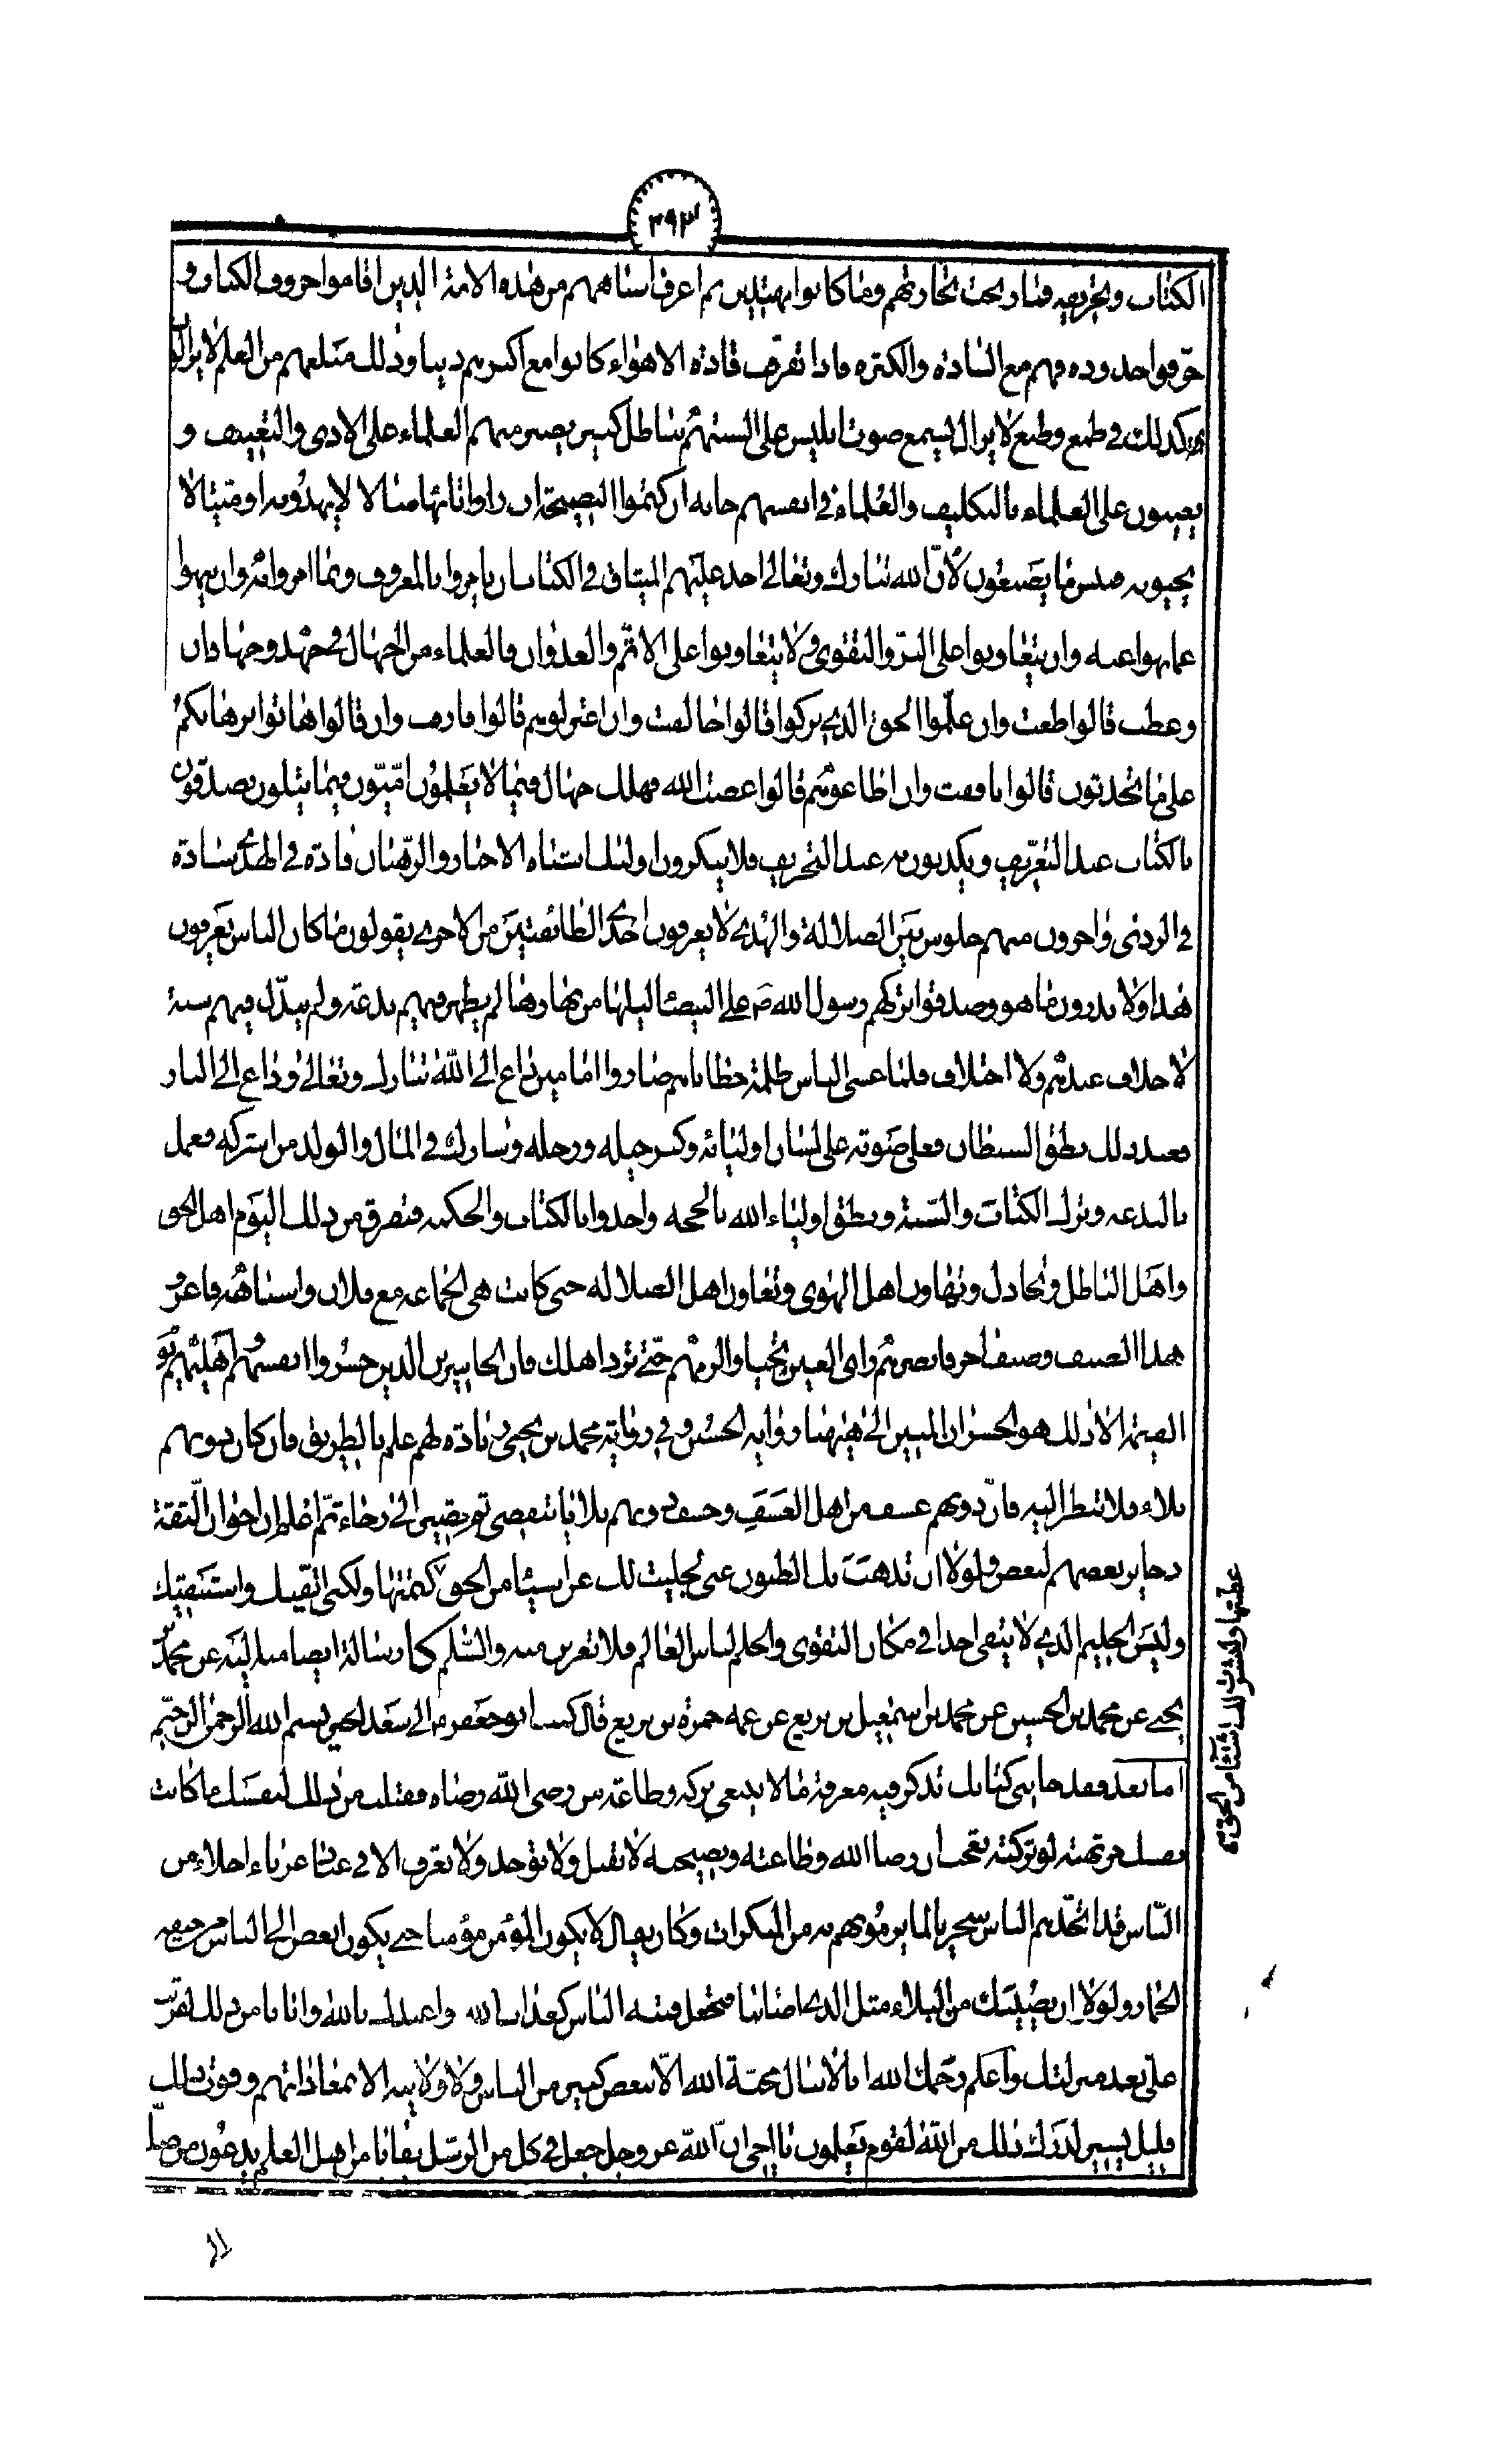 ٣٩٣
الكتاب وتحريفه فما ربحت تجارتهم وما كانوا مهتدين ثم اعرف اشباههم من هذه الامة الذين اقاموا حروف الكتاب و
حرّفوا حدوده فهم مع السادة والكثرة فاذا تفرقت قادة الاهواء كانوا مع اكثرهم دنيا وذلك مبلغهم من العلم لا يزالون
كذلك في طمع وطبع لا يزال يسمع صوت ابليس على السنتهم بباطل كثير يصبر منهم العلماء على الاذى والتعنيف و
يعيبون على العلماء بالتكليف والعلماء في انفسهم خانة ان كتموا النصيحة ان راوا تائها ضالا لا يهدونه او ميتا لا
يحيونه فبئس ما يصنعون لانّ الله تبارك وتعالى اخذ عليهم الميثاق في الكتاب ان يامروا بالمعروف وبما امروا به وان ينهوا
عما نهوا عنه وان يتعاونوا على البرّ والتقوى ولا يتعاونوا على الاثم والعدوان فالعلماء من الجهال في جهد وجهاد ان
وعظت قالوا طغت وان علّموا الحق الذي تركوا قالوا خالفت وان اعتزلوهم قالوا فارقت وان قالوا هاتوا برهانكم
على ما تحدثون قالوا نافقت وان اطاعوهم قالوا عصت الله فهلك جهال فيما لا يعلمون امّيّون فيما يتلون يصدّقون
بالكتاب عند التعريف ويكذبون به عند التحريف فلا ينكرون اولئك اشباه الاحبار والرهبان قادة في الهوى سادة
في الردى واخرون منهم جلوس بين الضلالة والهدى لا يعرفون احدى الطائفتين من الاخرى يقولون ما كان الناس يعرفون
هذا ولا يدرون ما هو وصدقوا تركهم رسول الله ص على البيضاء ليلها من نهارها لم يظهر فيهم بدعة ولم يبدّل فيهم سنة
لا خلاف عندهم ولا اختلاف فلما غشى الناس ظلمة خطاياهم صاروا امامين داع الى الله تبارك وتعالى وداع الى النار
فعند ذلك نطق الشيطان فعلى صوته على لسان اوليائه وكثر خيله ورجله وشارك في المال والولد من اشركه فعمل
بالبدعة وترك الكتاب والسّنة ونطق اولياء الله بالحجة واخذوا بالكتاب والحكمة فتفرق من ذلك اليوم اهل الحق
واهل الباطل وتخاذل وتهاون اهل الهدى وتعاون اهل الضلالة حتى كانت هي الجماعة مع فلان واشباهه فاعرف
هذا الصنف وصنف اخر فابصرهم راى العين نجباء والزمهم حتى ترد اهلك فان الخاسرين الذين خسروا انفسهم واهليهم يوم
القيمة الا ذلك هو الخسران المبين الى هيهنا رواية الحسين وفي رواية محمد بن يحيى زيادة لهم علم بالطريق فان كان دونهم
بلاء فلا تنظر اليه فانّ دونهم عسف من اهل العسف وخسف ودونهم بلايا تنقضى ثم تصير الى رخاء ثمّ اعلم ان اخوان الثقة
ذخاير بعضهم لبعض ولولا ان تذهب بك الظنون عنى لجليت لك عن اشياء من الحق كتمتها ولكنى اتقيك واستبقيك
وليس الحليم الذي لا يتقى احدا في مكان التقوى والحلم لباس العالم فلا تعرين منه والسّلم رسالة ايضا منه اليه عن محمد
يحيى عن محمد بن الحسين عن محمد بن اسمعيل بن بزيع عن عمه حمزة بن بزيع قال كتب ابو جعفر ع الى سعد الخير بسم الله الرحمن الرحيم
اما بعد فقد جاءنى كتابك تذكر فيه معرفة ما لا ينبغى تركه وطاعة من رضى الله رضاه فقلت من ذلك لنفسك ما كانت
نفسك مرتهنة لو تركته تعجب ان رضا الله وطاعته ونصيحته لا تقبل ولا توجد ولا تعرف الا في عباد غرباء اخلاء من
النّاس قد اتخذهم الناس سخريا لما يرمونهم به من المنكرات وكان يقال لا يكون المؤمن مؤمنا حتى يكون ابغض الى الناس من جيفة
الحمار ولولا ان يصيبك من البلاء مثل الذي اصابنا فتجعل فتنة الناس كعذاب الله واعيذك بالله وايانا من ذلك لقربت
على بعد منزلتك واعلم رحمك الله انا لا ننال محبّة الله الّا ببغض كثير من الناس ولا ولايته الا بمعاداتهم وفوت ذلك
قليل يسير لدرك ذلك من الله لقوم يعلمون يا اخى انّ الله عز وجل جعل في كل من الرسل بقايا من اهل العلم يدعون من ضلّ